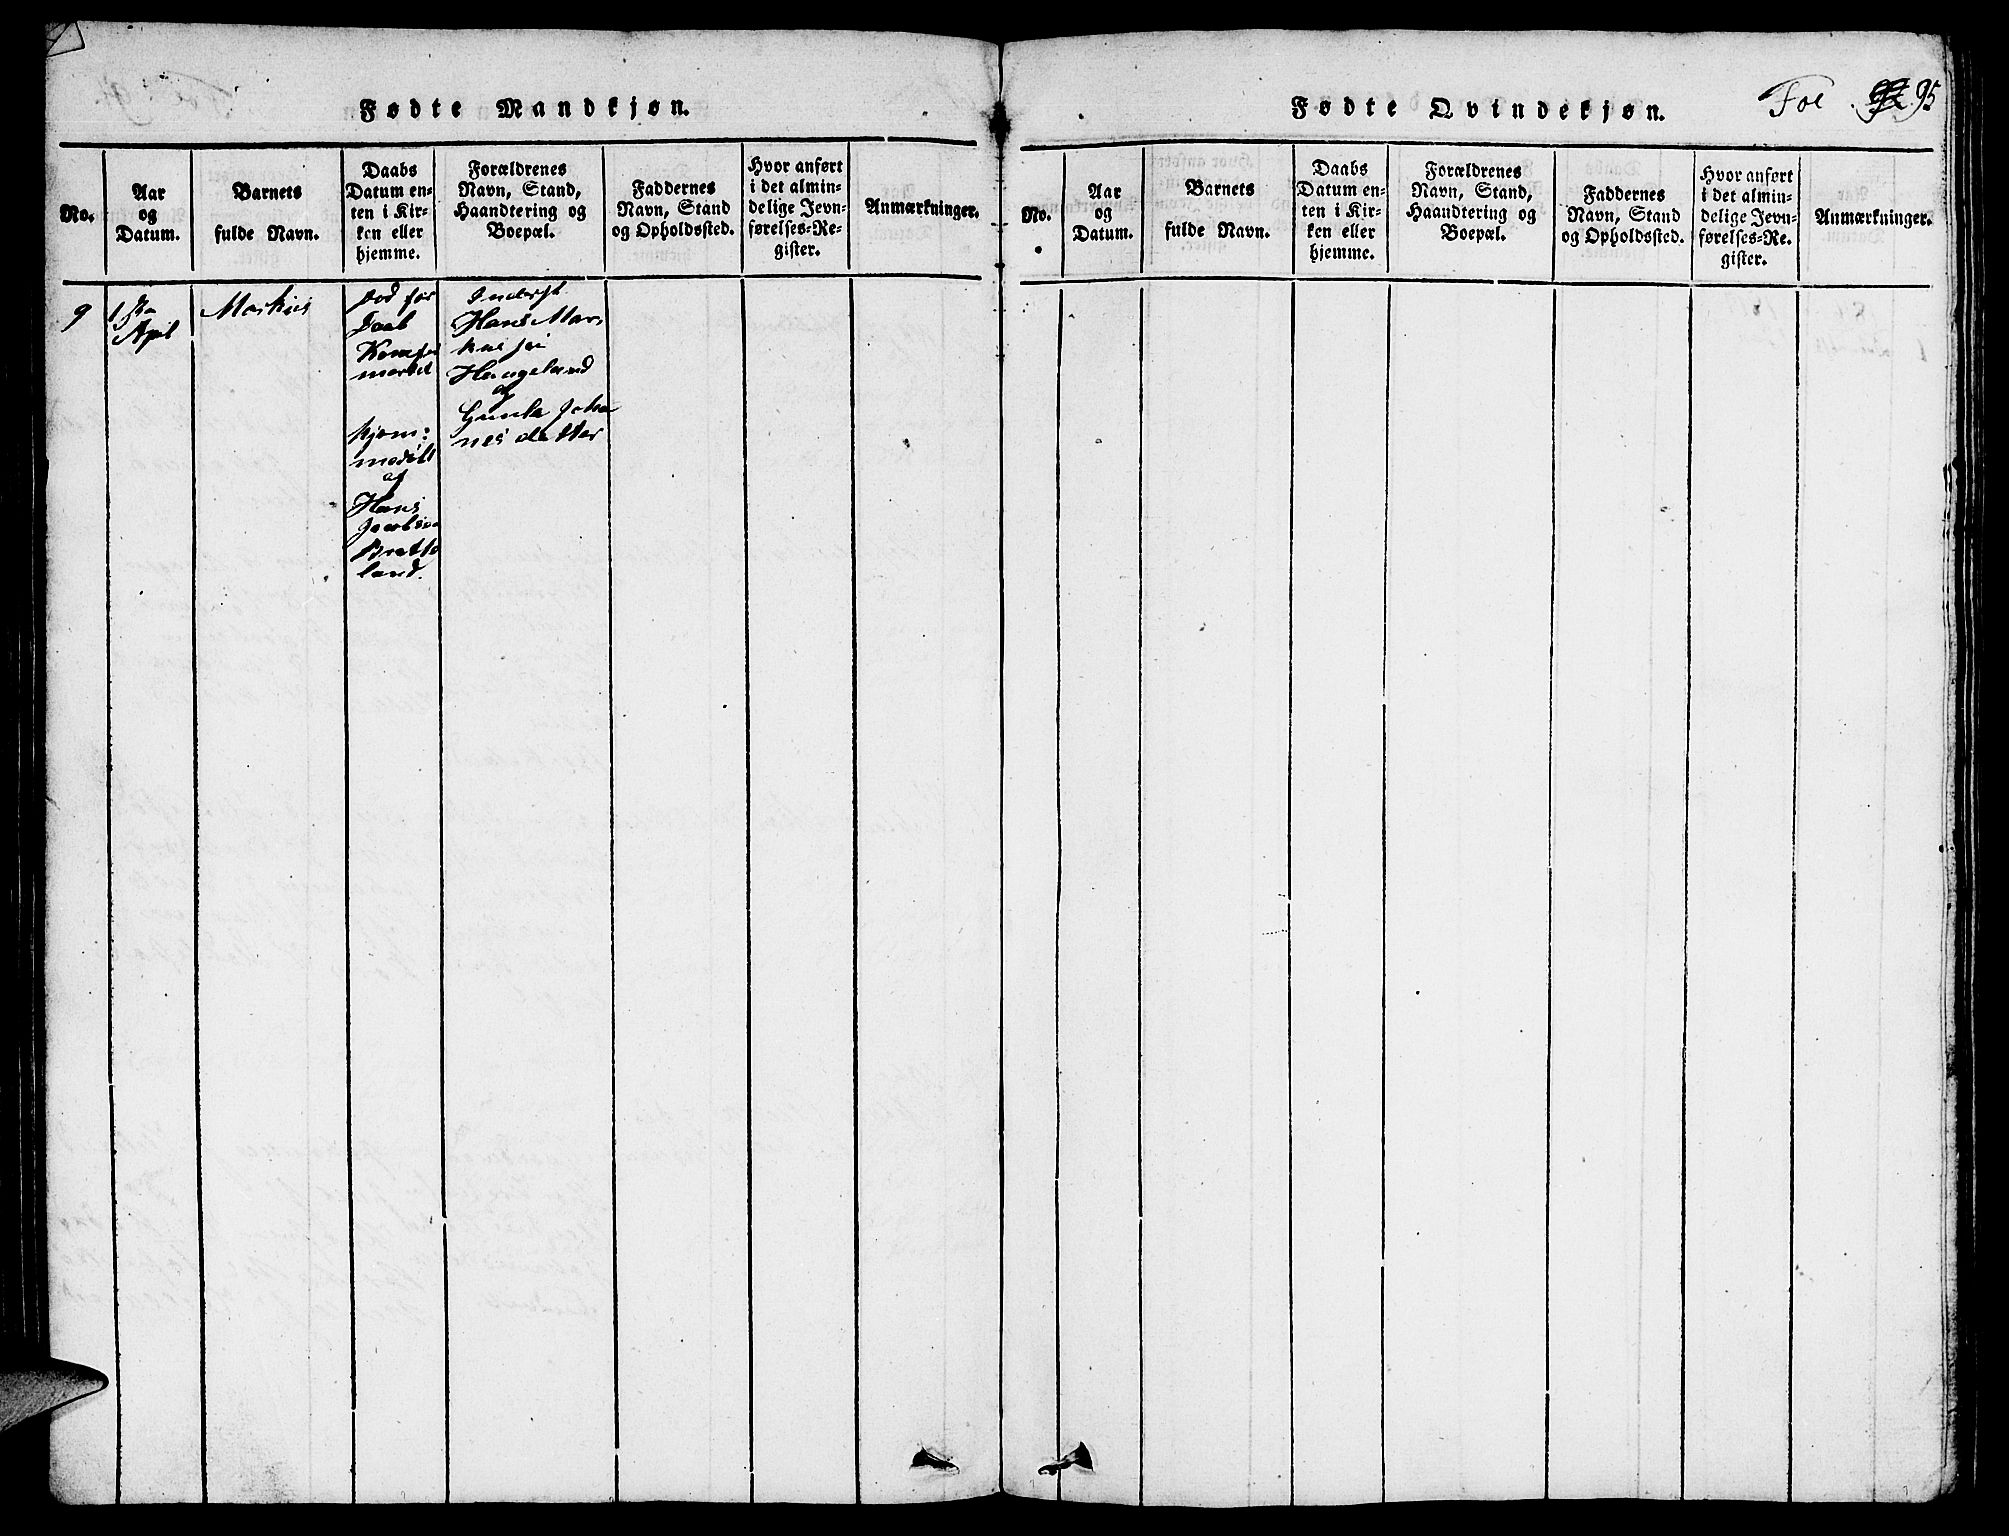 Fødte Mandkjøn.
No.
Aar
og
Datum.
Barnets
fulde Navn.
Daabs
Datum en-
ten i Kir-
ken eller
hjemme.
Forældrenes
Navn, Stand,
Haandtering og
Boepæl.
Faddernes
Navn, Stand
og Opholdssted.
Hvor anført
i det almin-
delige Jevn-
førelses-Re-
gister.
Anmærkninger.
9
Apıl
Markus
Død før
Daab
hjem:
medöbt
af
Hans
Jacobsen
Bratte
land.
Inderst
Hans Mar
kussen
Haugeland
og
Gunla Joha
nes datter
Fødte Qvindekjøn.
Foe 95
No.
Aar
og
Datum.
Barnets
fulde Navn.
Daabs
Datum en-
ten i Kir-
ken eller
hjemme.
Forældrenes
Navn, Stand,
Haandtering og
Boepæl.
Faddernes
Navn, Stand
og Opholdssted.
Hvor anført
i det almin-
delige Jevn-
førelses-Re-
gister.
Anmærkninger.